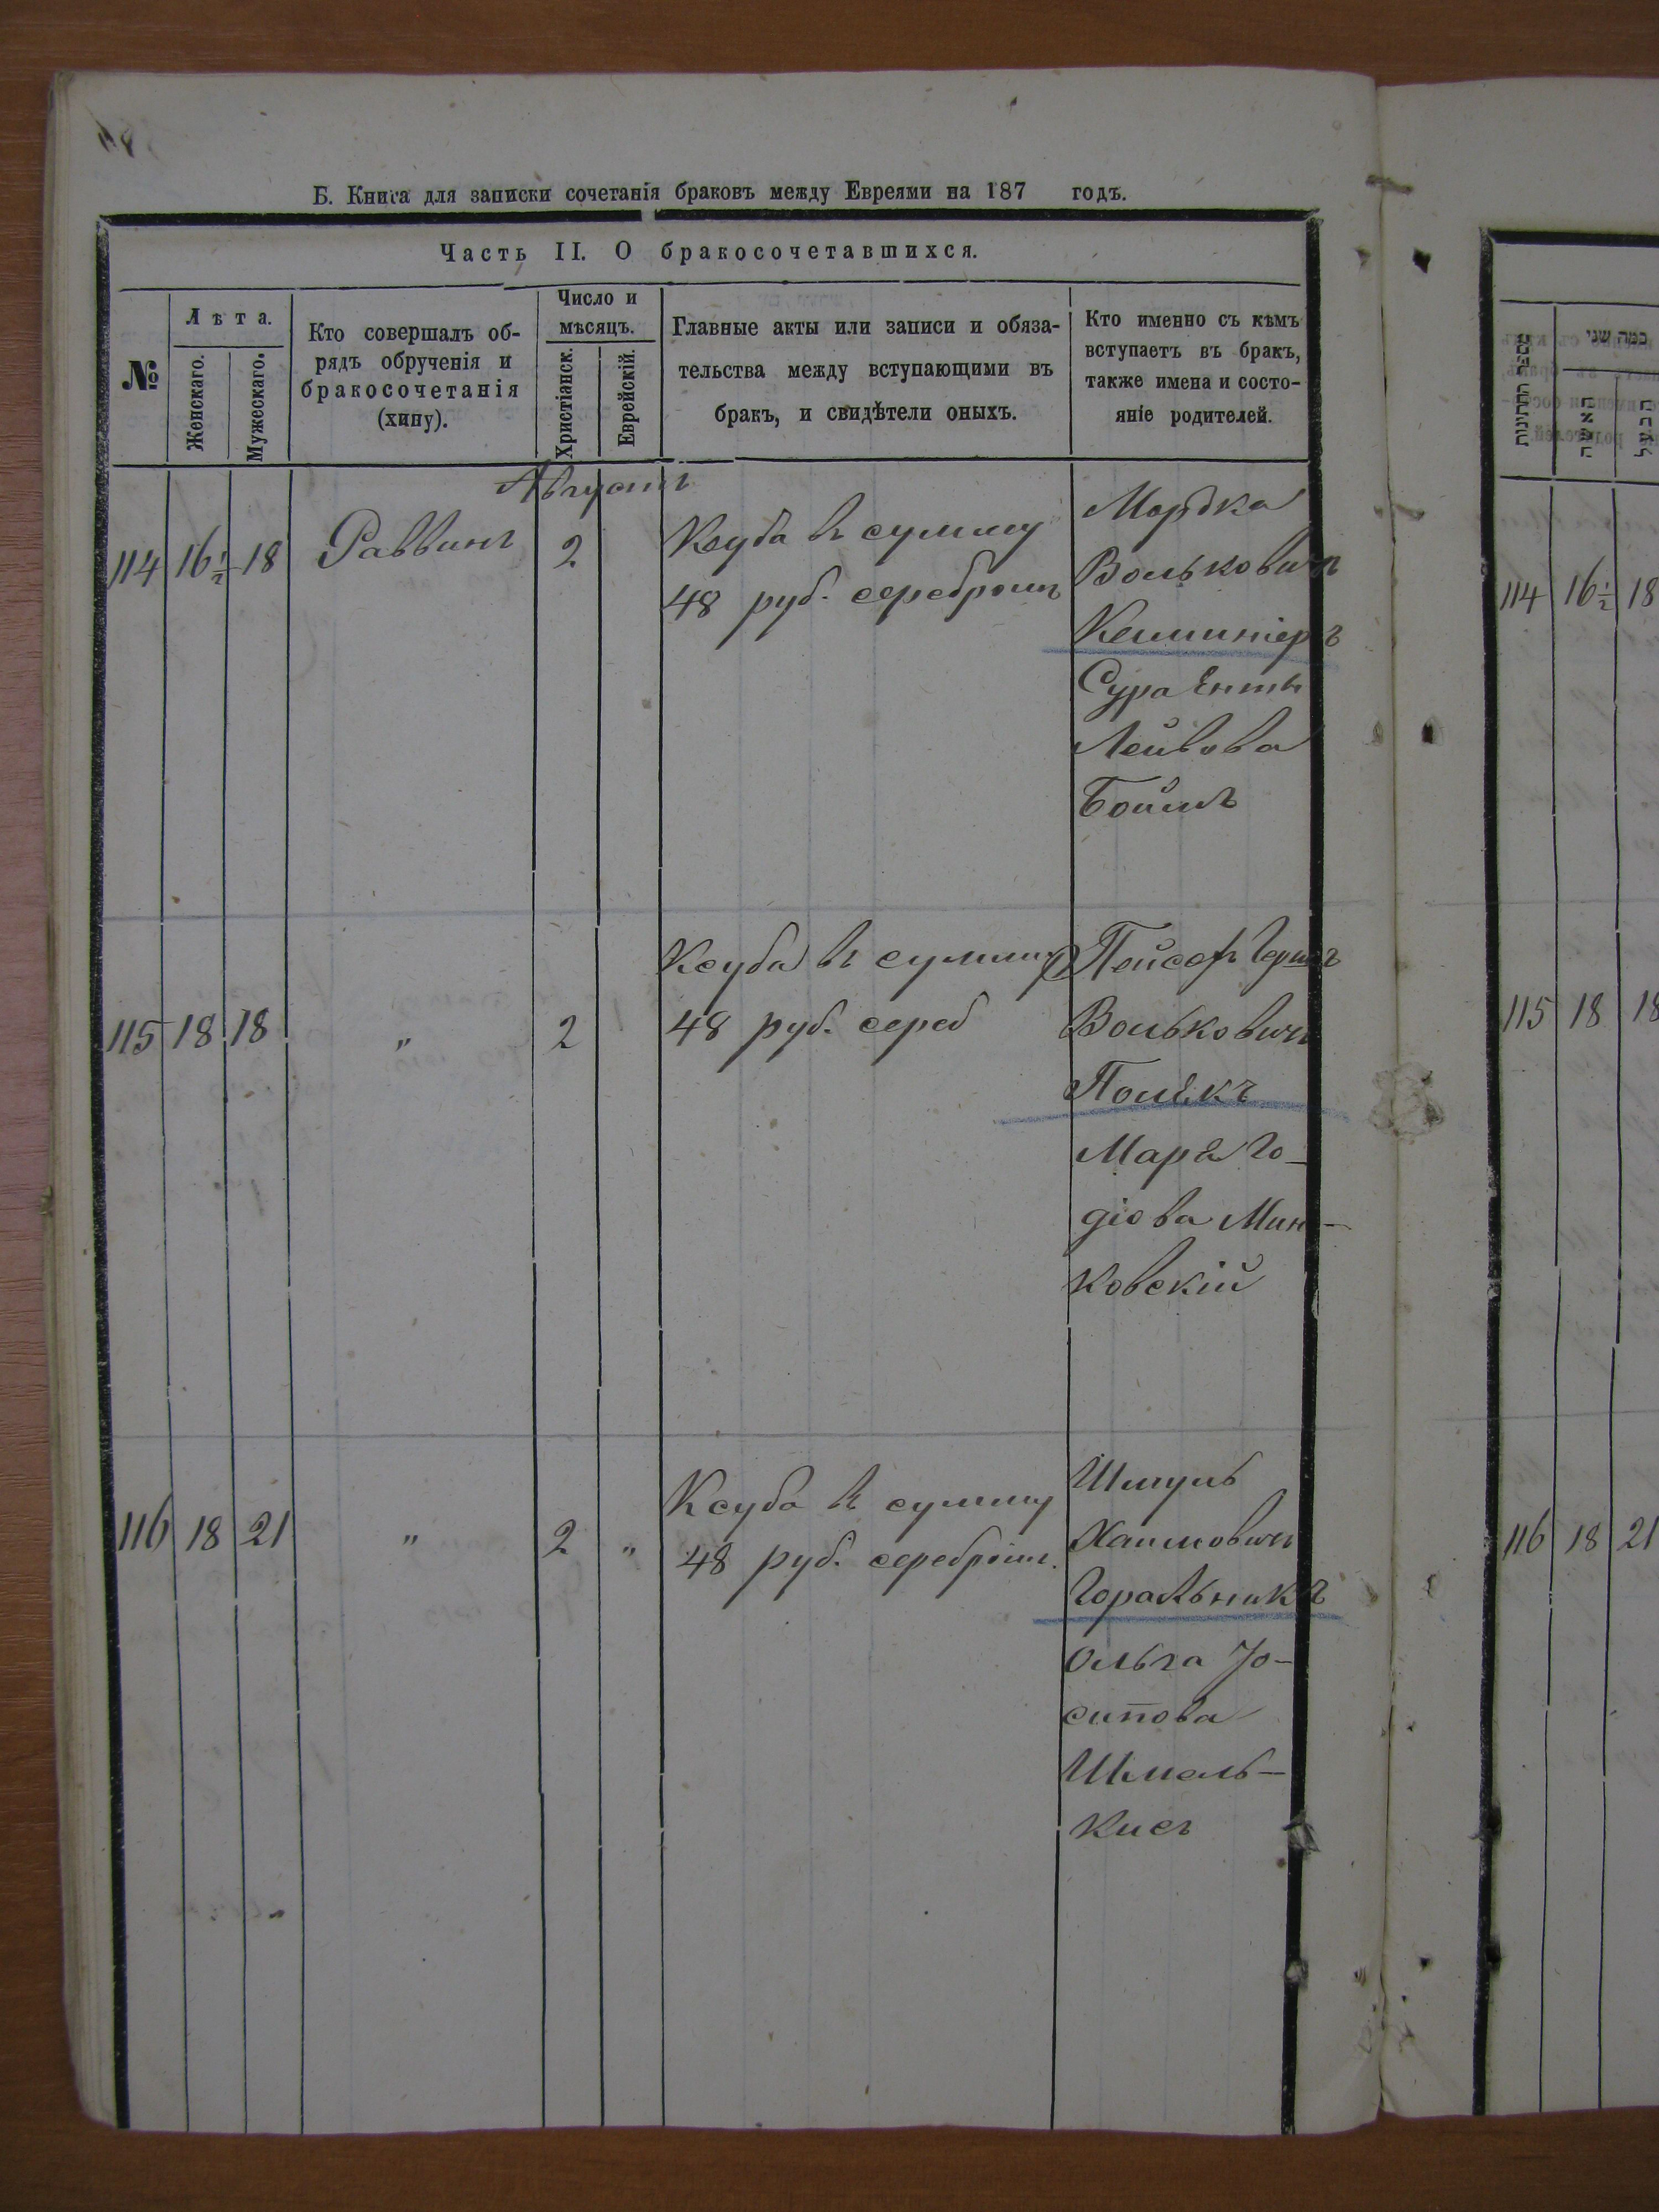 Б. Книга для записки сочетанія браковъ между Евреями на 187 годъ.
Часть II. О бракосочетавшихся.
№
Лѣта.
Женскаго.
Мужескаго.
Кто совершалъ об-
рядъ обрученія и
бракосочетанія
(хипу).
Число и
мѣсяцъ.
Христіанск.
Еврейскій.
Главные акты или записи и обяза-
тельства между вступающими въ
бракъ, и свидѣтели оныхъ.
Кто именно съ кѣмъ
вступаетъ въ бракъ,
также имена и состо-
яніе родителей.
Августъ
114 16½ 18 Раввинъ 2
Ксуба въ сумму
48 руб. серебромъ
Мордка
Вольковичъ
Сура Ента
Лейбова
Боймъ
115 18 18 „ 2
Ксуба въ сумму
48 руб. сереб
Пейсех Гершъ
Вольковичъ
Полякъ
Мария Го-
діова Мин-
ковскій
116 18 21 „ 2 „
Ксуба въ сумму
48 руб. серебромъ.
Шмуль
Хаимовичъ
Горальникъ
Ольга Іо-
сипова
Шмель-
кисъ
כמה שני
האשה
הבעל
114 16½ 18
115 18 18
116 18 21